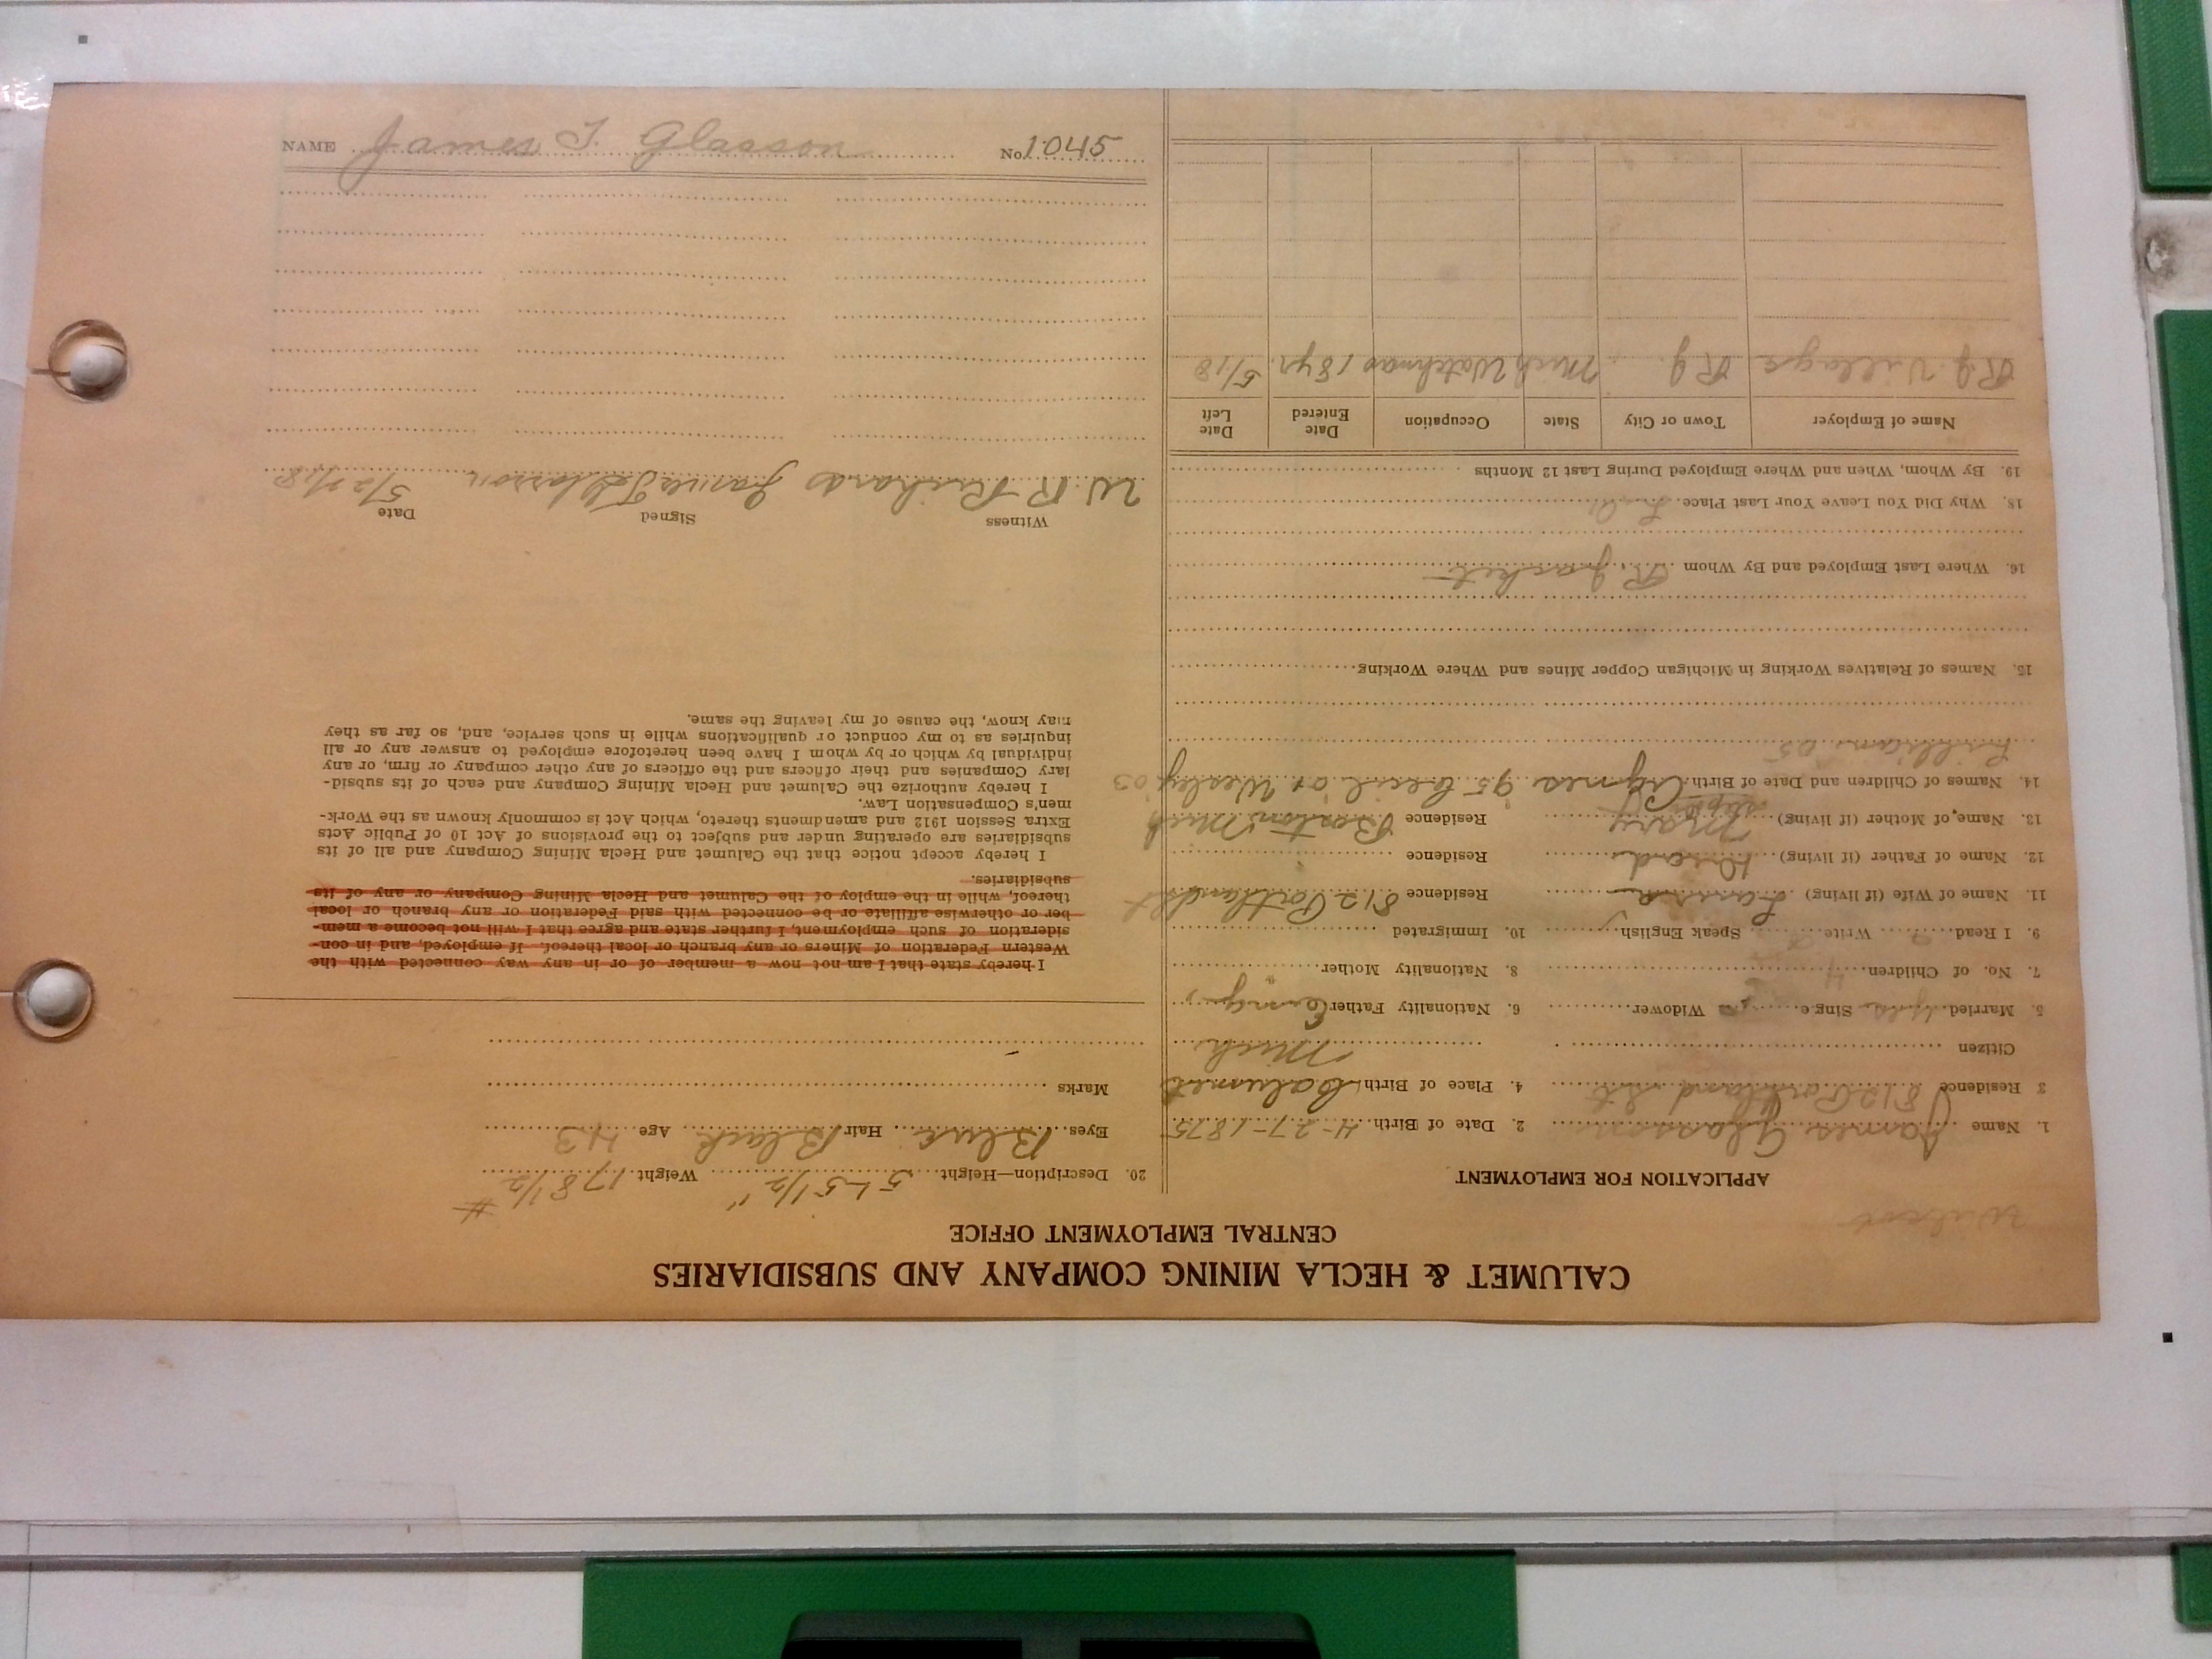 NAME James T. Glasson No. 1045
CALUMET & HECLA MINING COMPANY AND SUBSIDIARIES
CENTRAL EMPLOYMENT OFFICE
APPLICATION FOR EMPLOYMENT
1. Name James Glasson 2. Date of Birth 4-27-1875
3 Residence 812 Portland St 4. Place of Birth Calumet
Citizen Mich
5. Married yes Single Widower 6. Nationality Father
7. No. of Children 4 8. Nationality Mother
9. I Read Write Speak English 10. Immigrated
11. Name of Wife (if living) Residence 812 Portland St
12. Name of Father (if living) Residence
13. Name of Mother (if living) Mary Residence Boston Mich
14. Names of Children and Date of Birth Agnes 95 Cecil 01 Wesley 03
Lillian 05
15. Names of Relatives Working in Michigan Copper Mines and Where Working
16. Where Last Employed and By Whom R Jacket
18. Why Did You Leave Your Last Place
19. By Whom, When and Where Employed During Last 12 Months
Name of Employer Town or City State Occupation Date Entered Date Left
RJ Village RJ Mich Watchman 18 yr. 5/18
20. Description—Height 5 - 5 1/2" Weight 178 1/2 #
Eyes Blue Hair Black Age 43
Marks
I hereby state that I am not now a member of or in any way connected with the
Western Federation of Miners or any branch or local thereof. If employed, and in con-
sideration of such employment, I further state and agree that I will not become a mem-
ber or otherwise affiliate or be connected with said Federation or any branch or local
thereof, while in the employ of the Calumet and Hecla Mining Company or any of its
subsidiaries.
I hereby accept notice that the Calumet and Hecla Mining Company and all of its
subsidiaries are operating under and subject to the provisions of Act 10 of Public Acts
Extra Session 1912 and amendments thereto, which Act is commonly known as the Work-
men's Compensation Law.
I hereby authorize the Calumet and Hecla Mining Company and each of its subsid-
iary Companies and their officers and the officers of any other company or firm, or any
individual by which or by whom I have been heretofore employed to answer any or all
inquiries as to my conduct or qualifications while in such service, and, so far as they
may know, the cause of my leaving the same.
Witness Signed Date
W R Richards James T Glasson 5/27/18